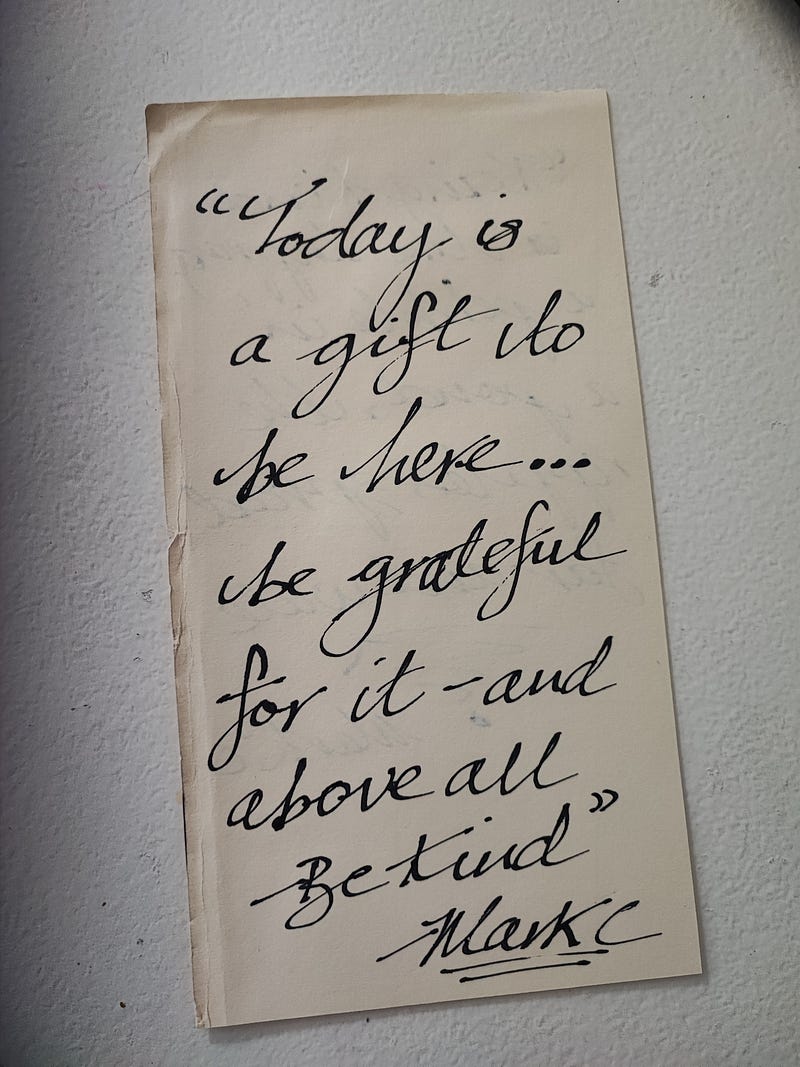 “Today is
a gift to
be here...
be grateful
for it - and
above all
Be Kind”
Mark C